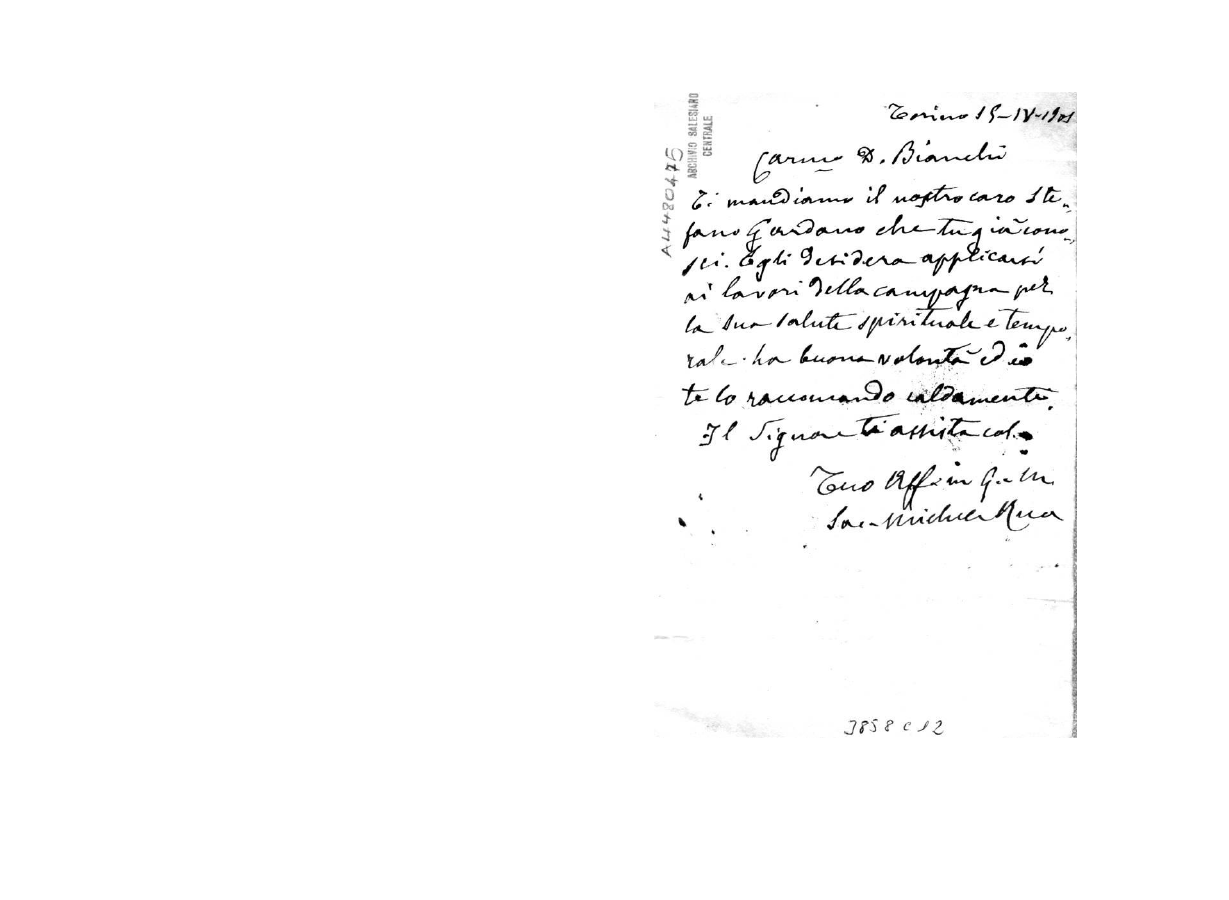 Torino 15-IV-1901
Carmo D. Bianchi
Ti mandiamo il nostro caro Ste-
fano Gordano che tu già cono-
sci. Egli desidera applicarsi
ai lavori della campagna per
la sua salute spirituale e tempo-
rale. ha buona volontà ed io
te lo raccomando caldamente.
Il Signore ti assista
Tuo Aff.mo in G. e M.
Sac. Michele Rua
ARCHIVIO SALESIANO
CENTRALE
A4480475
3858 C 12